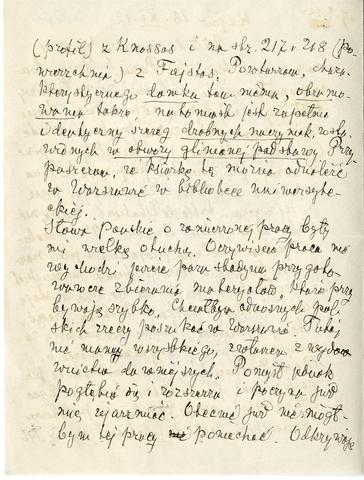 (profil) z Knossos i na str. 217 i 218 (po-
wierzchnia) z Fajstos. Powtarzam, chara-
kterystycznego domku tam niema, obramo-
wania także, natomiast jest zupełnie
identyczny szereg drobnych naczynek, wsta-
wionych w otwory glinianej podstawy. Przy
puszczam, że książkę tę można odnaleźć
w Warszawie w bibliotece uniwersyte-
ckiej.
Słowa Pańskie o zamierzonej pracy były
mi wielką otuchą. Oczywiście praca nie
wychodzi jeszcze poza stadyum przygoto
wawcze zbierania materyałów, które przy
bywają szybko. Chciałbym odnośnych pol-
skich rzeczy poszukać w Warszawie. Tutaj
nie mamy wszystkiego, zwłaszcza z wydaw
nictw dawniejszych. Pomysł jednak
pogłębia się i rozszerza i poczyna już
mię ujarzmiać. Obecnie już nie mógł
bym tej pracy poniechać. Odkrywają